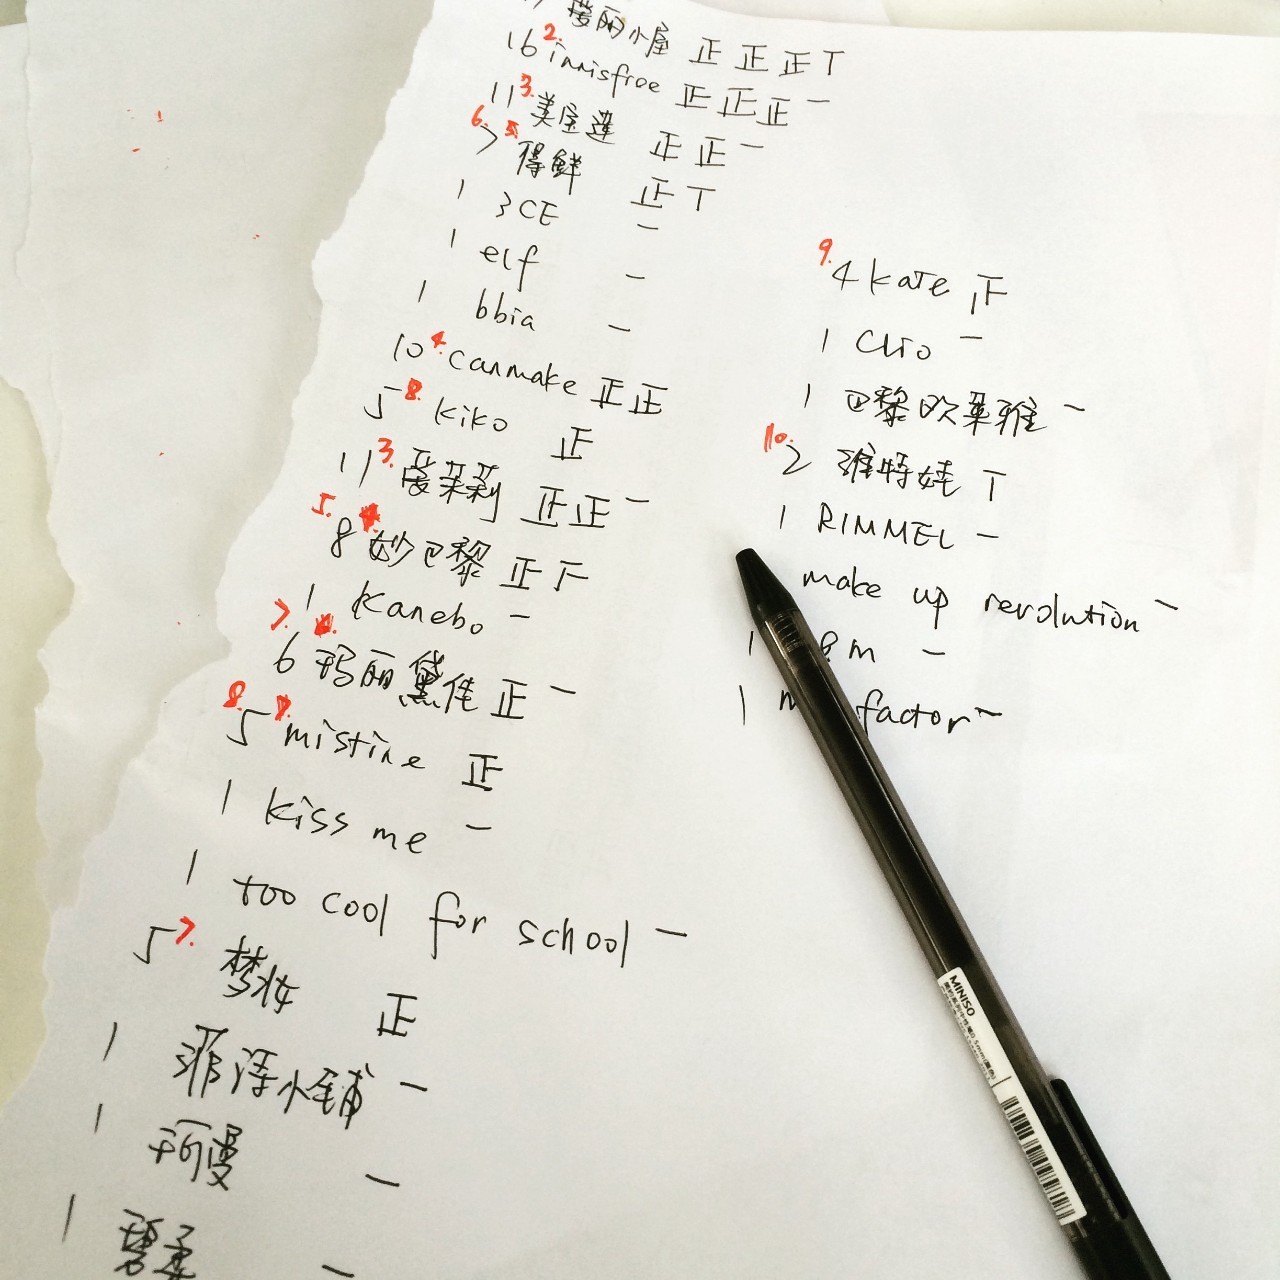 丽小屋 正正正丅
16 2. innisfree 正正正一
11 3. 美宝莲 正正一
6. 7 得鲜 正丅
1 3CE 一
1 elf 一
1 bbia 一
10 4. canmake 正正
5 8. kiko 正
11 3. 爱茉莉 正正一
5. 8 妙巴黎 正下
1 Kanebo 一
7. 6 玛丽黛佳 正一
8. 5 mistine 正
1 kiss me 一
1 too cool for school 一
5 7. 梦妆 正
1 菲诗小铺 一
1 珂曼 一
1 碧柔 一
9. 4 kate 止
1 Clio 一
1 巴黎欧莱雅 一
10. 2 雅特娃 丅
1 RIMMEL 一
make up revolution 一
1 &m 一
1 m factor 一
MINISO